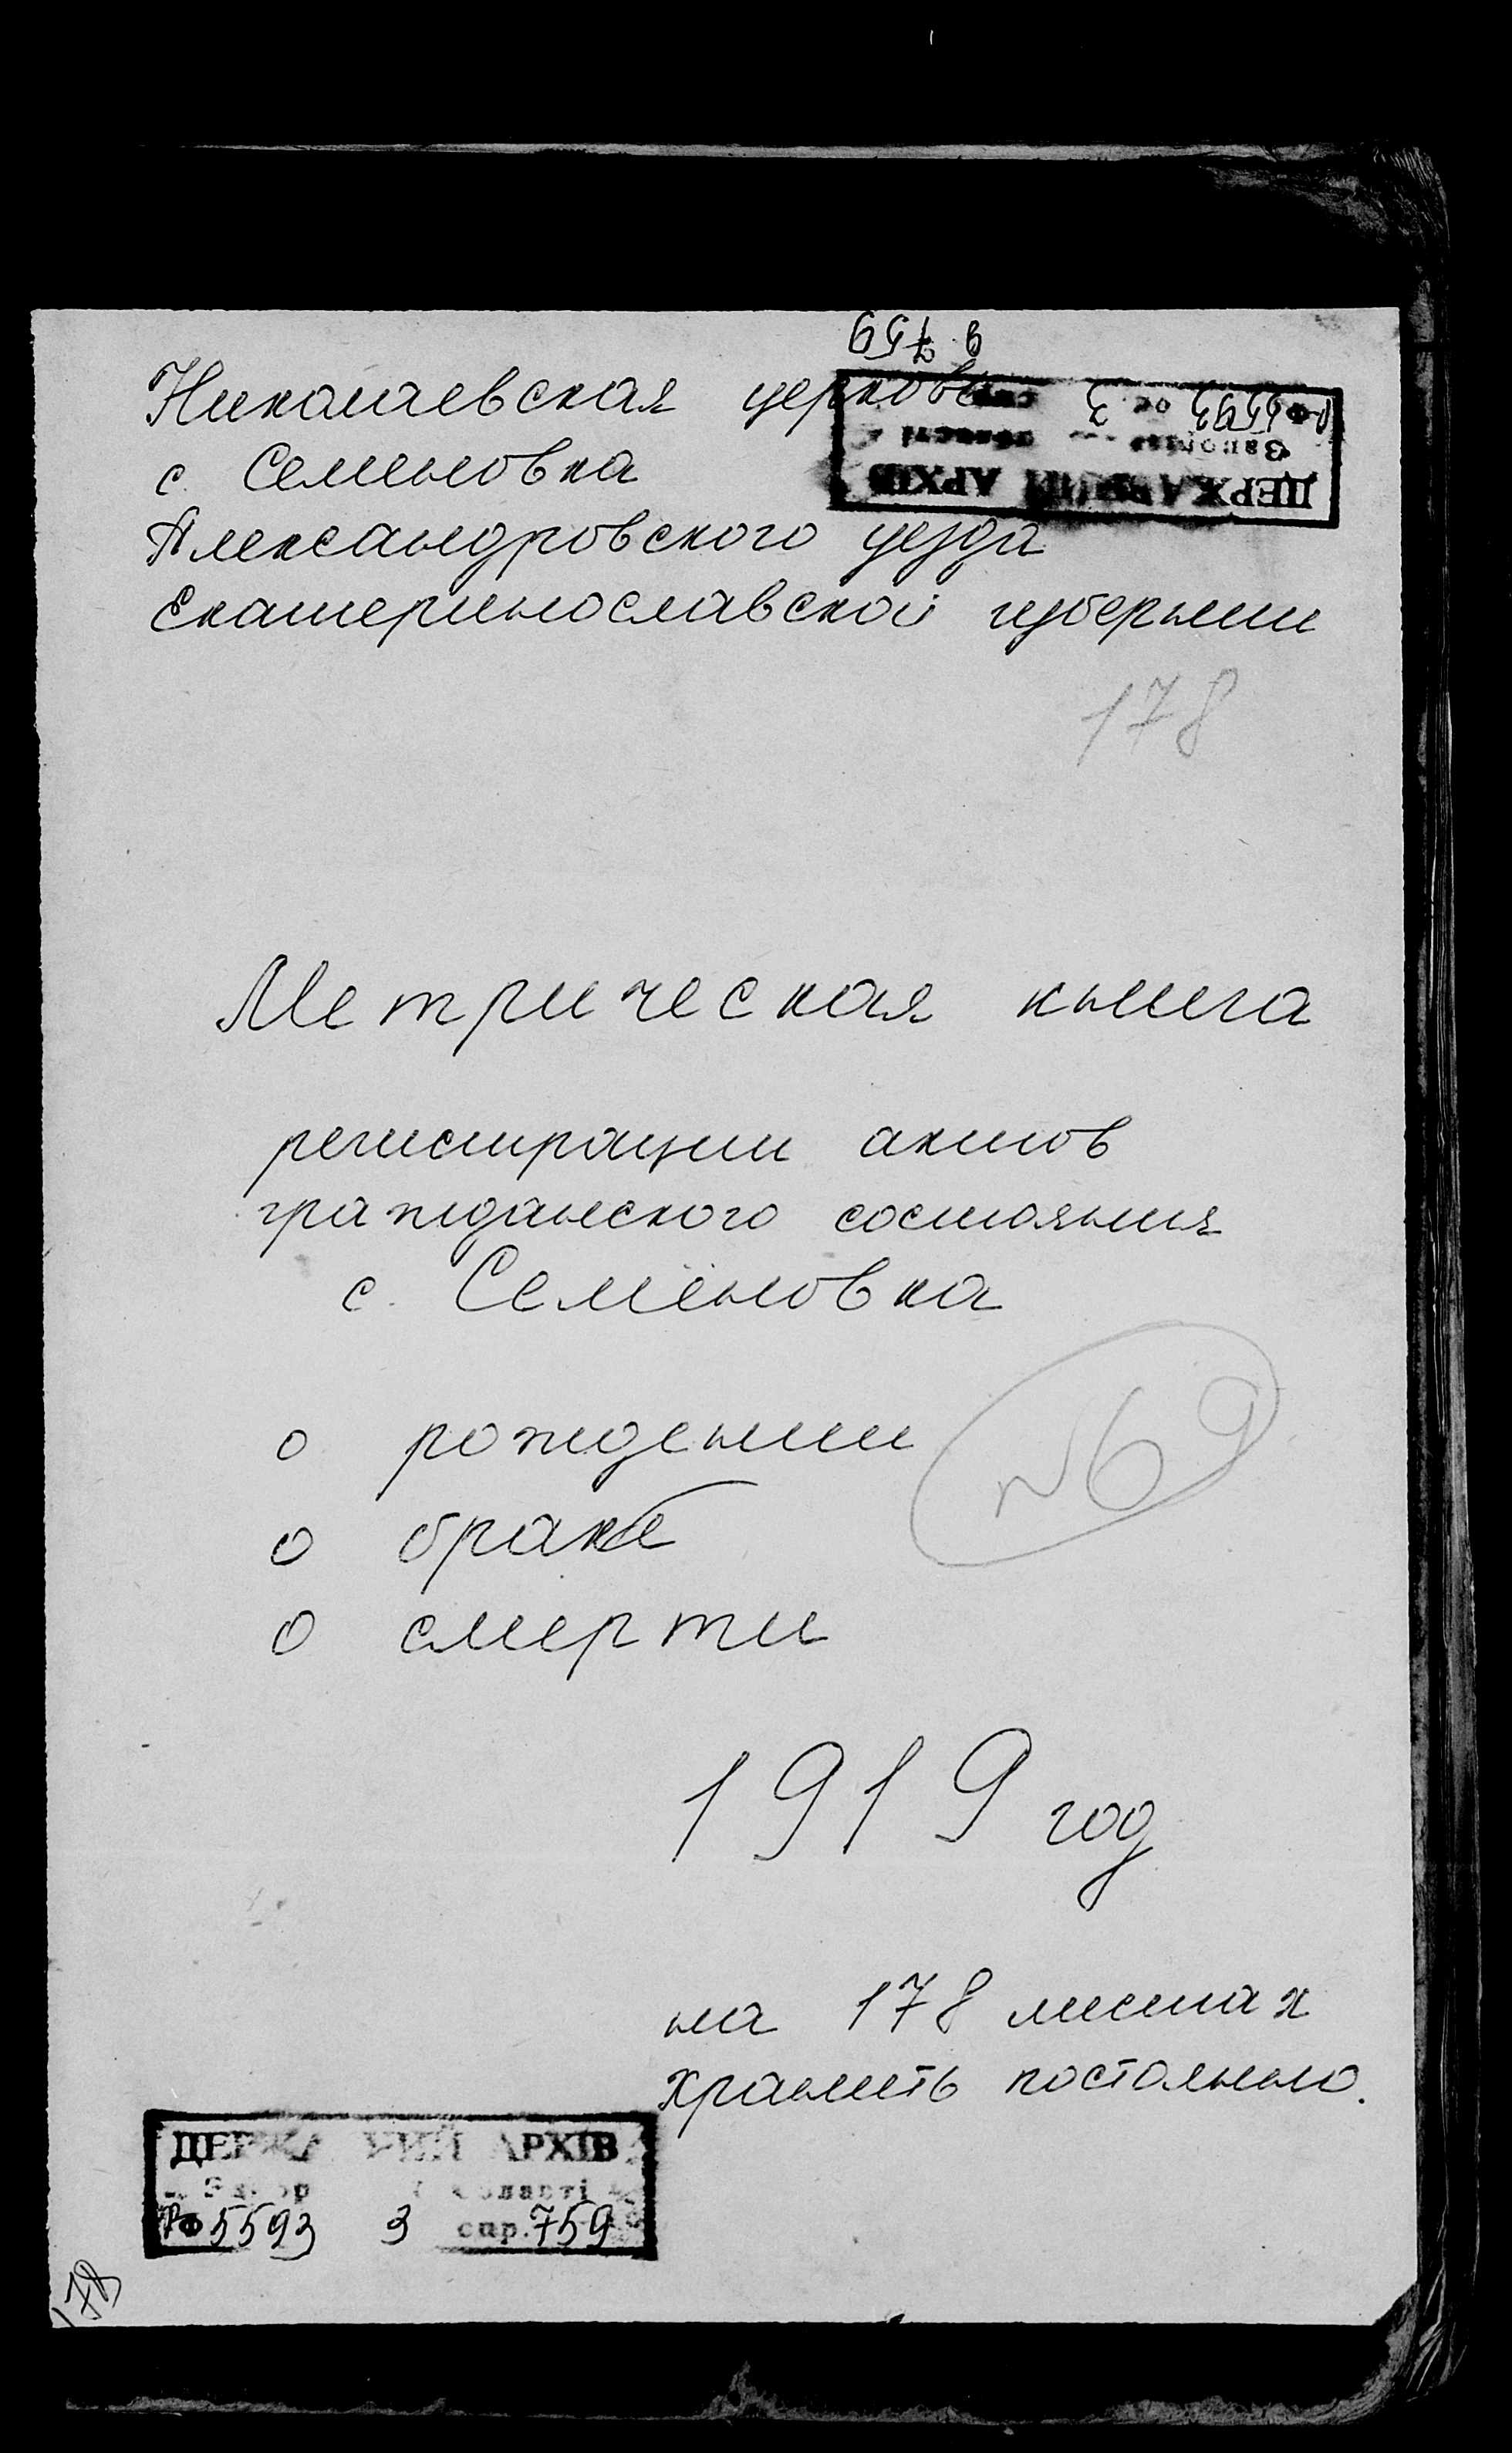 9. 759
Николаевская церковь
Р-Ф 5593 оп. 3 спр.
области
ДЕРЖАВНИЙ АРХІВ
с. Семеновка
Александровского уезда
Екатеринославской губернии
178
Метрическая книга
регистрации актов
гражданского состояния
с. Семёновка
о рождении
№69
о браке
о смерти
1919 год
на 178 листах
хранить постоянно.
ДЕРЖАВНИЙ АРХІВ
області
РФ 5593 3 спр. 759
178